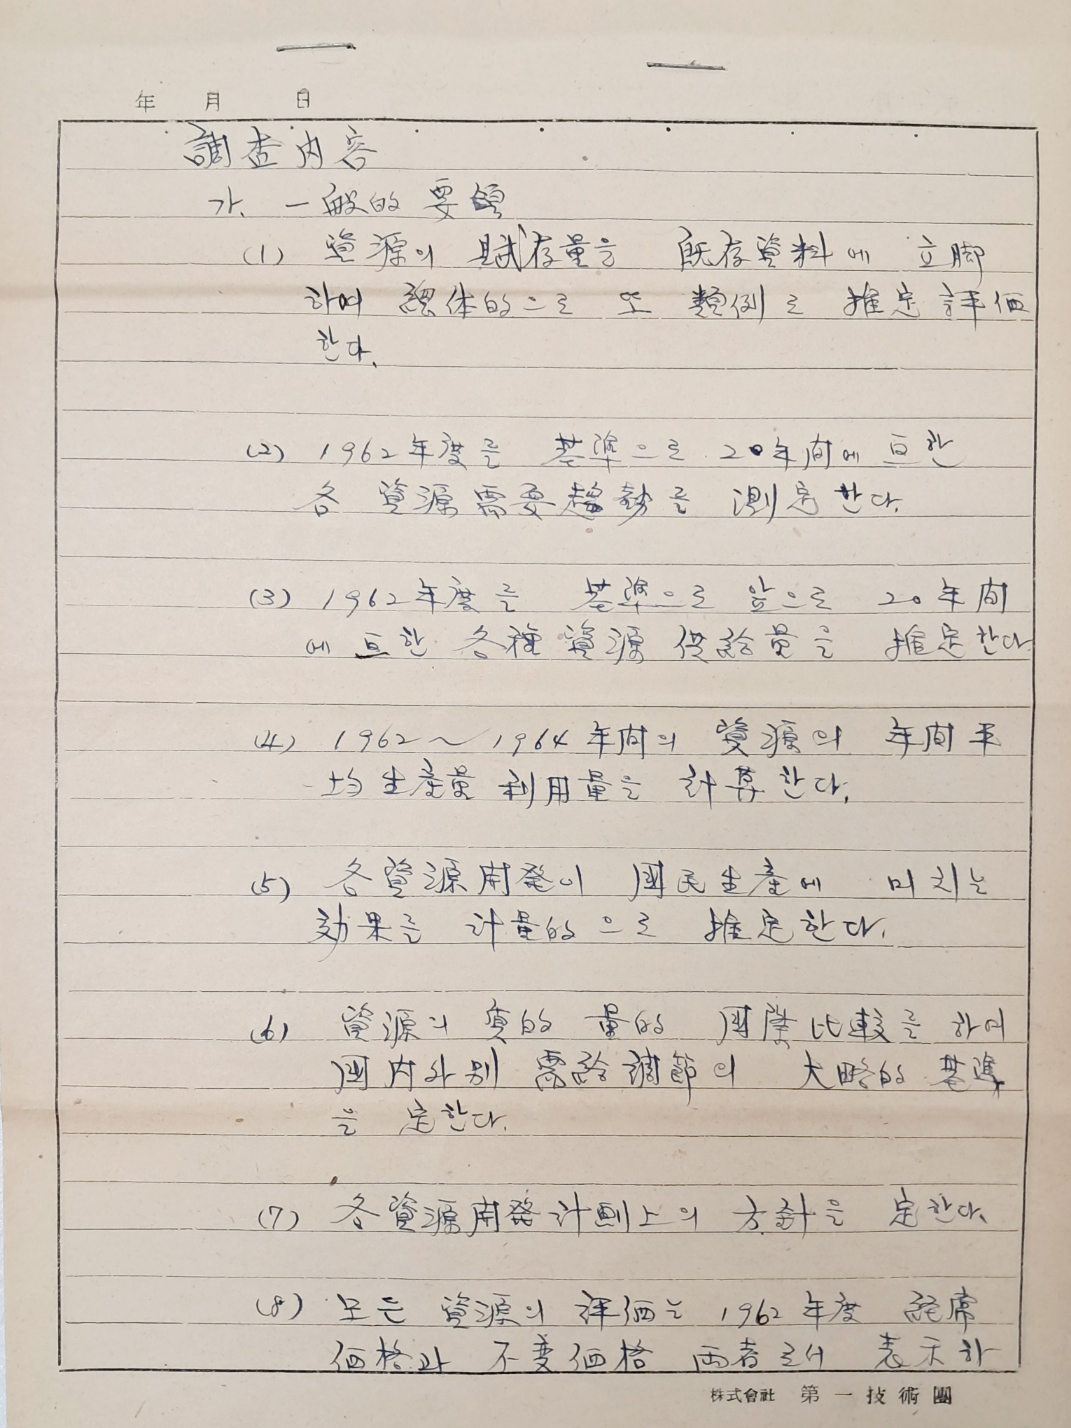 年 月 日
調査内容
가. 一般的 要領
(1) 資源의 賦存量을 既存資料에 立脚
하여 總体的으로 또 類例로 推定評価
한다.
(2) 1962年度를 基準으로 20年間에 亘한
各 資源需要趨勢를 測定한다.
(3) 1962年度를 基準으로 앞으로 20年間
에 亘한 各種 資源 供給量을 推定한다
(4) 1962~1964年間의 資源의 年間平
均生産量 利用量을 計算한다.
(5) 各資源開発이 國民生産에 미치는
効果를 計量的으로 推定한다.
(6) 資源의 質的 量的 國際比較를 하여
國內外別 需給調節의 大略的 基準
을 定한다.
(7) 各資源開発計劃上의 方針을 定한다.
(8) 모든 資源의 評価는 1962年度
価格과 不変価格 両者로서 表示하
株式會社 第一技術團